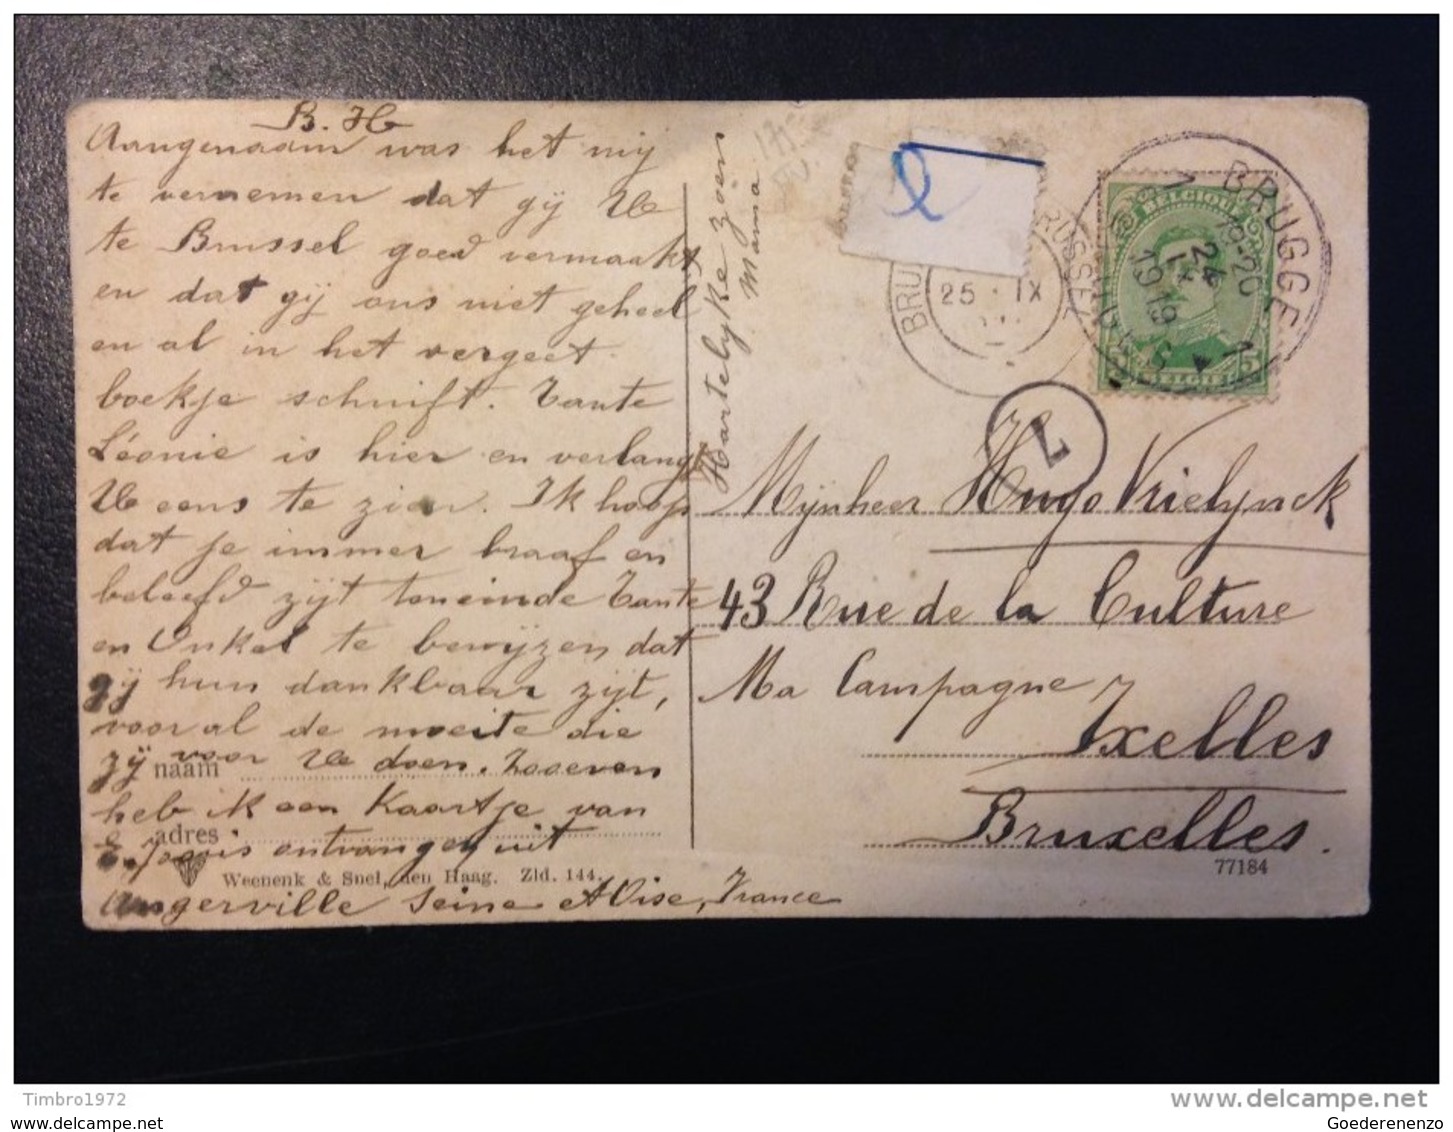 B. H
Aangenaam was het mij
te vernemen dat gij Ue
te Brussel goed vermaakt
en dat gij ons niet geheel
en al in het vergeet
boekje schrijft. Tante
Léonie is hier en verlangt
Ue eens te zien. Ik hoop
dat je immer braaf en
beleefd zijt teneinde Tante
en Onkel te bewijzen dat
gij hun dankbaar zijt,
vooral de moeite die
zij voor Ue doen. Zooeven
naam
heb ik een Kaartje van
adres
ontvangen uit
Weenenk & Snel, den Haag. Zld. 144.
Angerville Seine et Oise, France
Hartelyke zoen
Mama
BRUSSEL
25 IX
BRUGGE
1
19-20
24
IX
1919
BELGIQUE
BELGIE
5
L
Mijnheer Hugo Vrielynck
43 Rue de la Culture
Ma Campagne
Ixelles
Bruxelles.
77184
Timbro1972
www.delcampe.net
www.delcampe.net
Goederenenzo